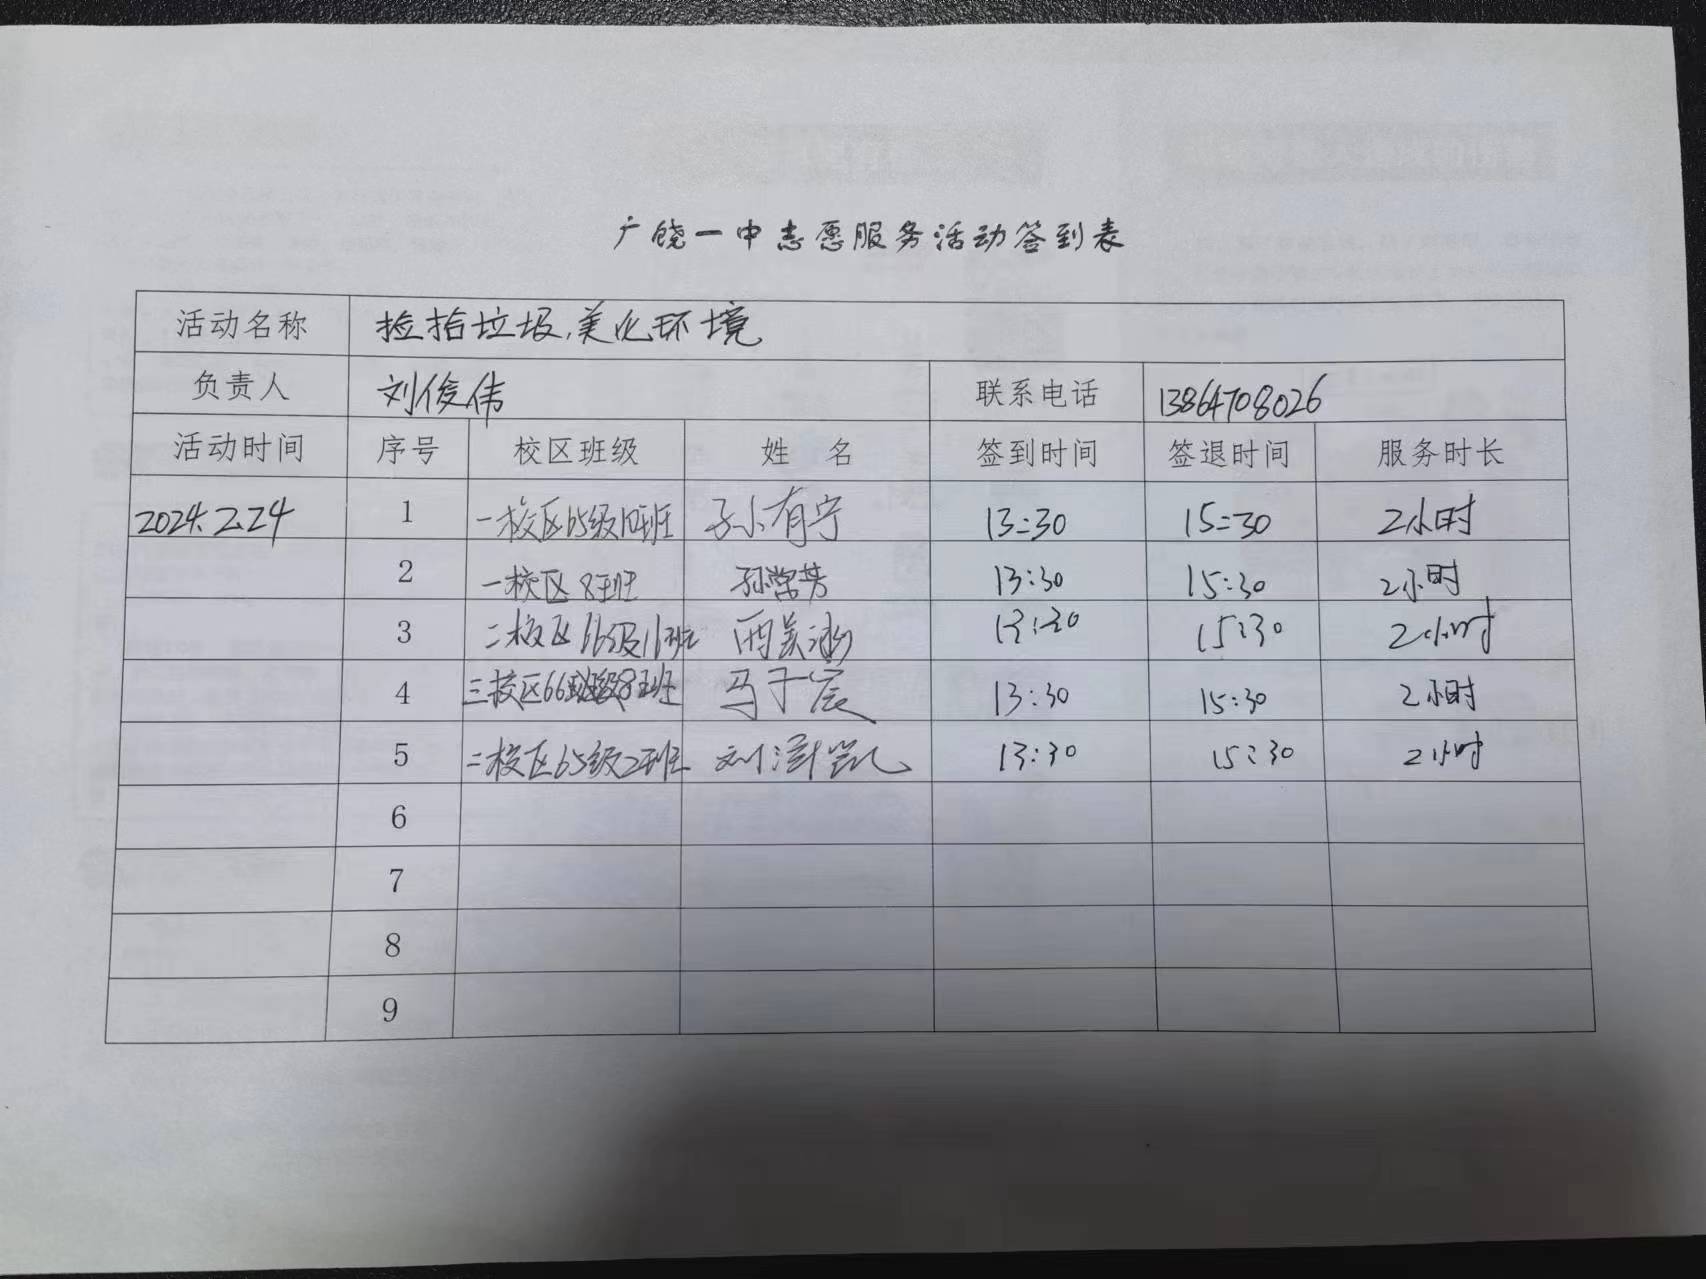 广饶一中志愿服务活动签到表
活动名称 捡拾垃圾,美化环境
负责人 刘俊伟 联系电话 13864708026
活动时间 序号 校区班级 姓 名 签到时间 签退时间 服务时长
2024.2.24 1 一校区65级10班 孙有宁 13:30 15:30 2小时
2 一校区8班 13:30 15:30 2小时
3 二校区66级11班 13:30 15:30 2小时
4 三校区66级8班 马于宸 13:30 15:30 2小时
5 二校区65级2班 刘泽凯 13:30 15:30 2小时
6
7
8
9